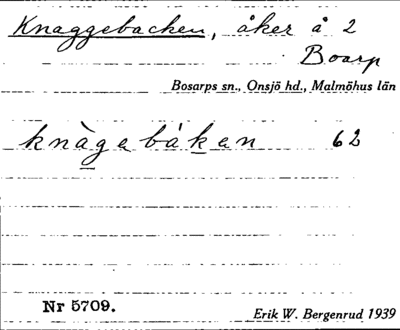 Knaggebacken, åker å 2
Boarp
Bosarps sn., Onsjö hd., Malmöhus län
knàgebáken 62
Nr 5709.
Erik W. Bergenrud 1939